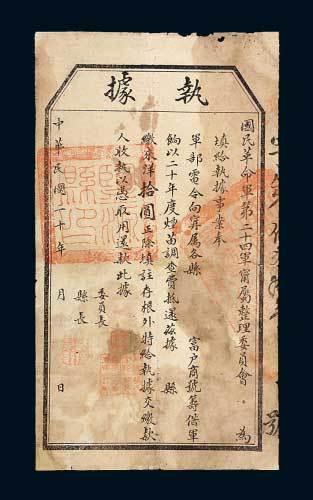 執據
國民革命軍第二十四軍甯屬整理委員會 為
填給執據事業奉
軍部電令向甯屬各縣 富戶商號籌借軍
餉以二十年度煙苗調查費抵還茲據 縣
繳來洋拾圓正除填註存根外特給執據交繳款
人收執以憑取用還款此據
委員長
縣長
中華民國二十年 月 日
號